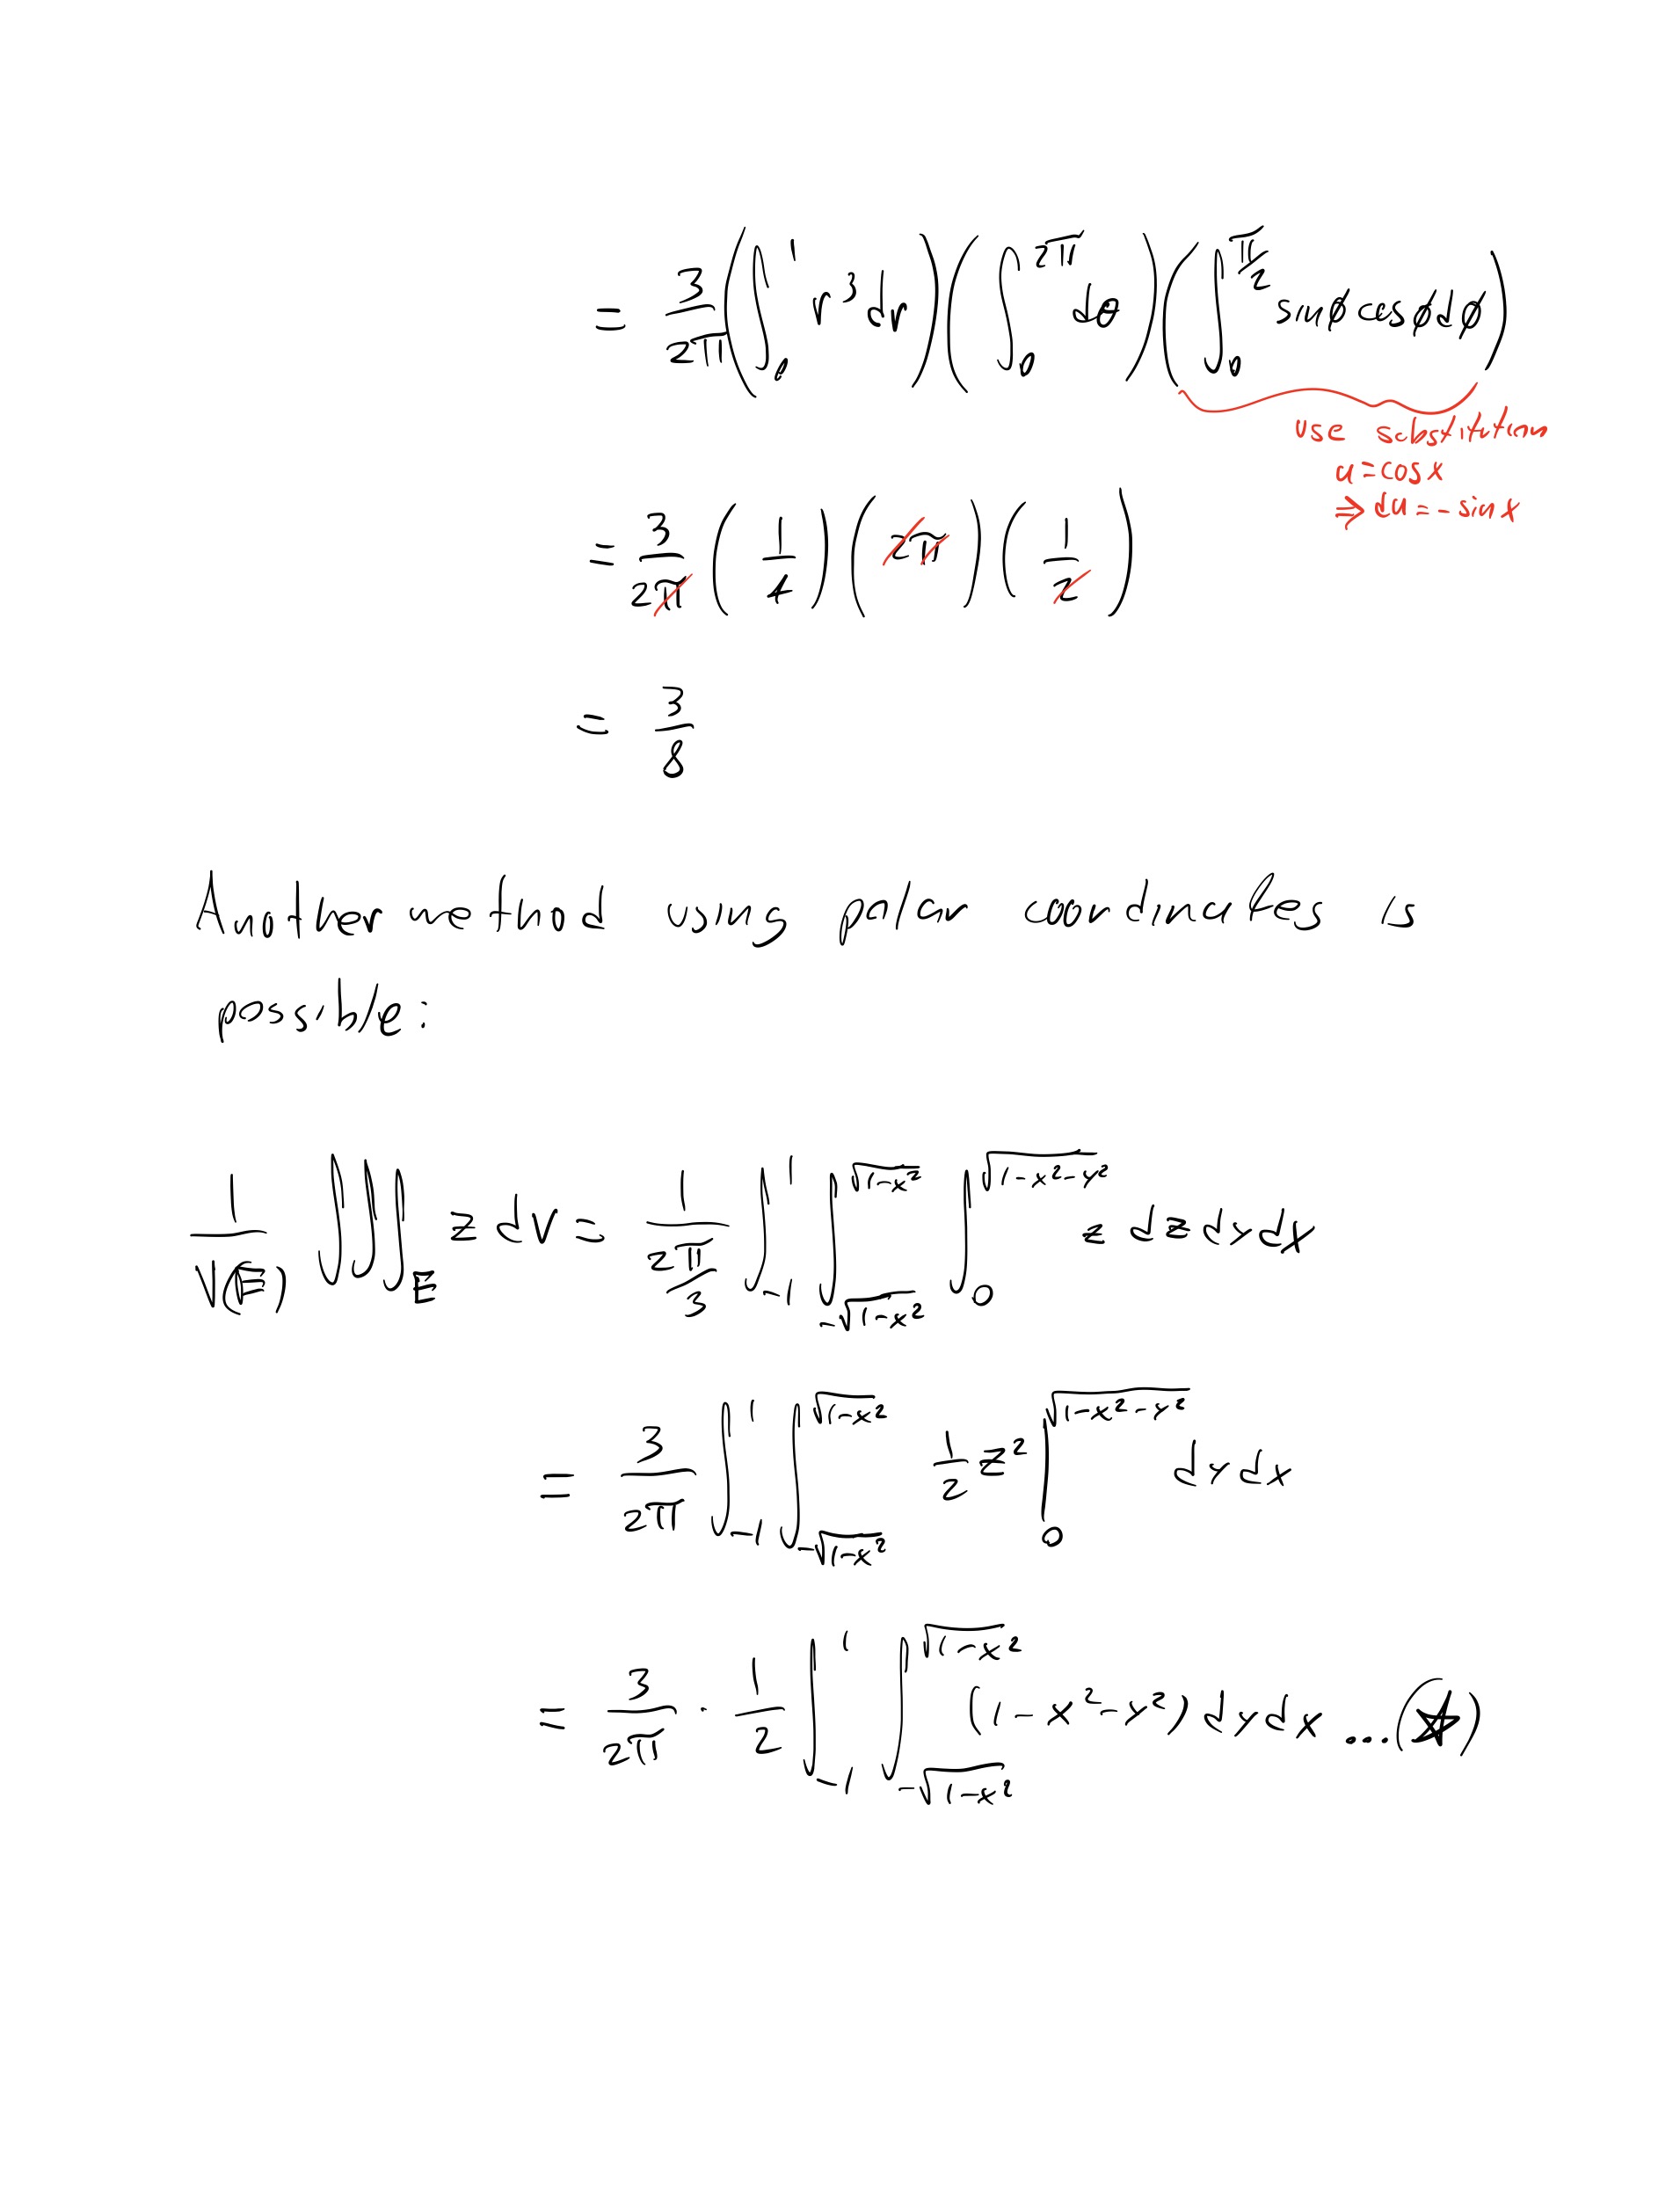 = 3/2π (∫_0^1 r^3 dr) (∫_0^{2π} dθ) (∫_0^{π/2} sinϕ cosϕ dϕ)
use substitution
u = cos x
⇒ du = - sin x
= 3/2π (1/4) (2π) (1/2)
= 3/8
Another method using polar coordinates is
possible:
1/V(E) ∭_E z dV = 1/(2π/3) ∫_{-1}^1 ∫_{-√(1-x²)}^{√(1-x²)} ∫_0^{√(1-x²-y²)} z dz dy dx
= 3/2π ∫_{-1}^1 ∫_{-√(1-x²)}^{√(1-x²)} 1/2 z² |_0^{√(1-x²-y²)} dy dx
= 3/2π · 1/2 ∫_{-1}^1 ∫_{-√(1-x²)}^{√(1-x²)} (1-x²-y²) dy dx ...(★)